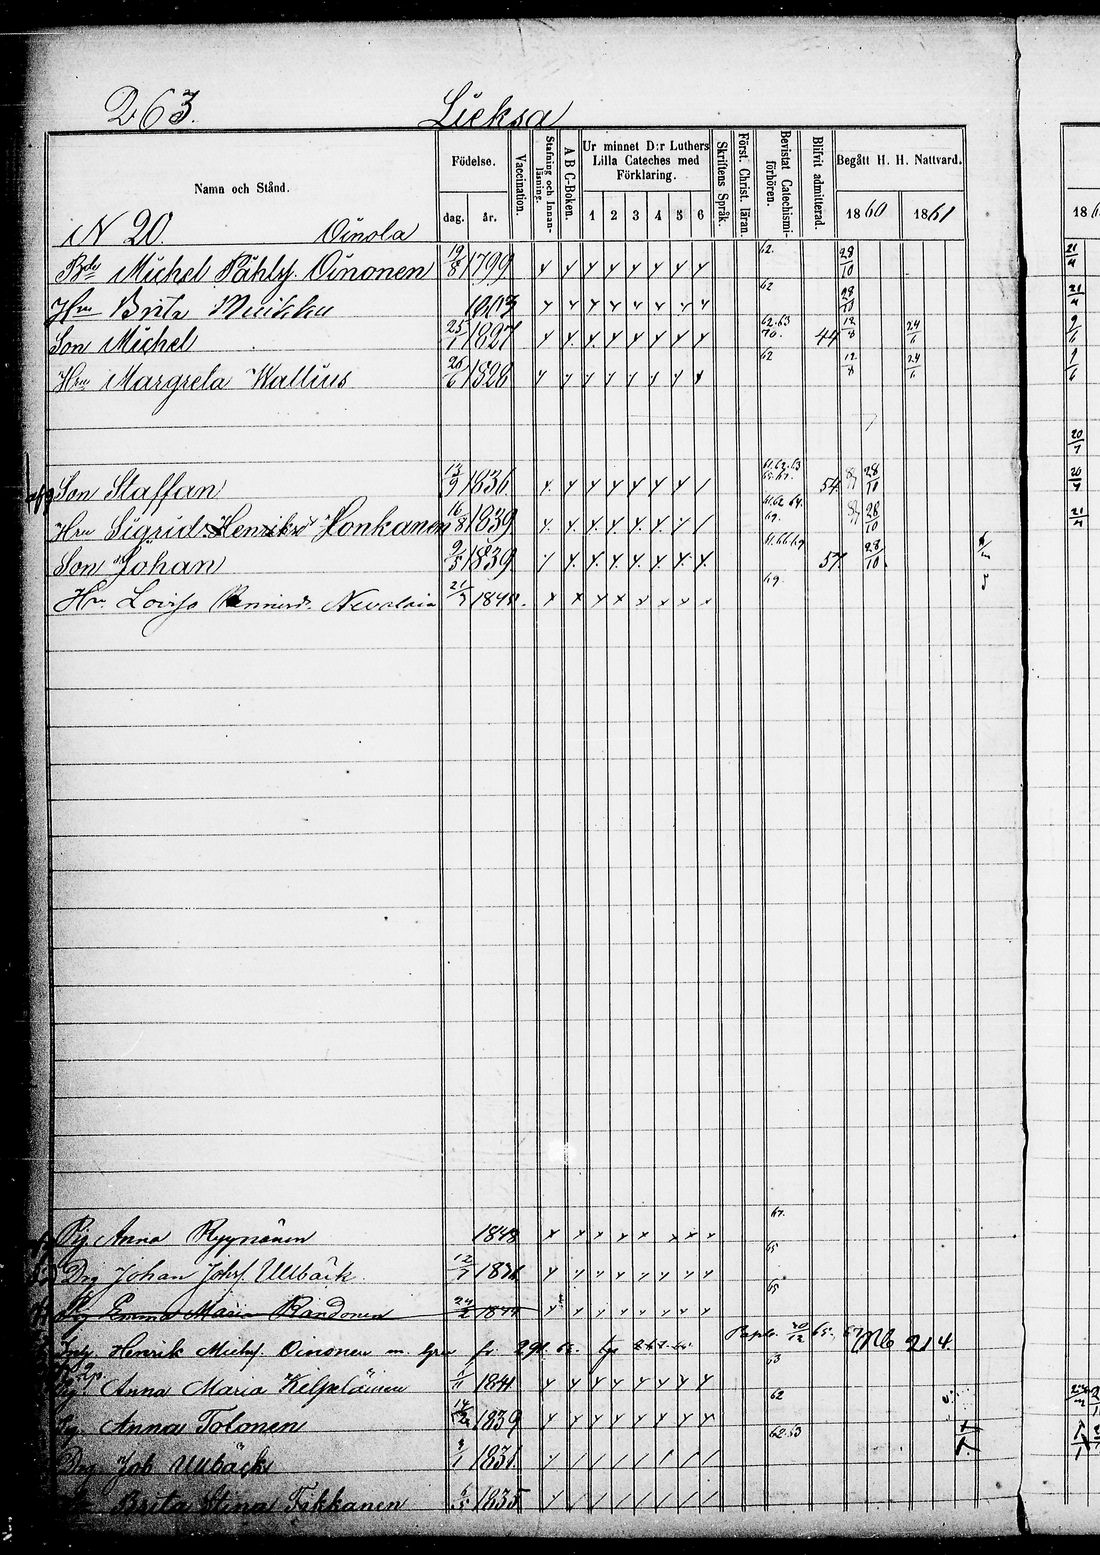 263. Lieksa
Namn och Stånd.
Födelse.
dag. år.
Vaccination.
Stafning och Innanläsning.
A B C-Boken.
Ur minnet D:r Luthers Lilla Cateches med Förklaring.
1 2 3 4 5 6
Skriftens Språk.
Först. Christ. läran.
Bevistat Catechismiförhören.
Blifvit admitterad.
Begått H. H. Nattvard.
1860 1861
N 20. Oinola
Michel Påhlsf. Oinonen 19/8 1799 62. 28/10
Hru Brita Muikku 1803 62 28/10
Son Michel 25/1 1827 62.63 70. 44 12/8 24/6
Hru Margreta Wallius 26/6 1826 62 12/8 24/6
Son Staffan 13/9 1836 54 28/10
Hru Sigrid Henriksd Honkanen 16/8 1839 61.62 64. 69. 28/10
Son Johan 9/5 1839 61.66.69 57 28/10
Hru Lovisa Nevalain 21/7 184 69.
Pig. Anna Ryynänen 1848 67.
Drg Johan Johsf. Ullbäck 12/7 1836 65
Pig Emma Maria Randonen 24/2 1844 65
Henrik Michsf. Oinonen m. 291. Nb 214.
Anna Maria Kelpeläinen 1841 63
Pig. Anna Tolonen 1839 62
Drg Job Ullbäck 1831 62.63
Brita Stina Tikkanen 1835